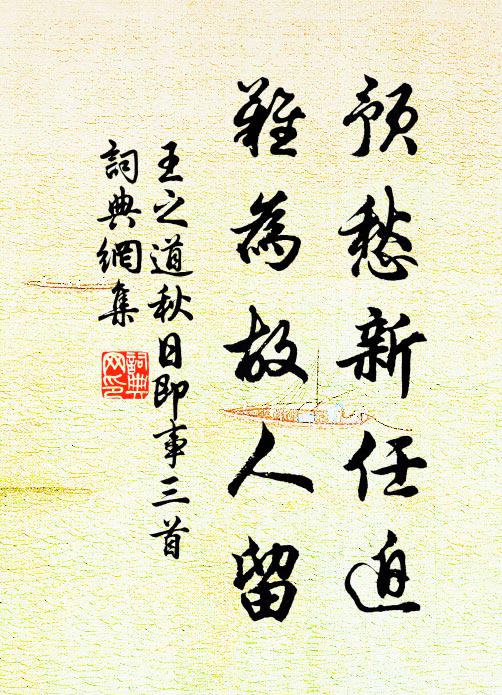 預愁新任迫
難為故人留
王之道秋日即事三首
詞典網集
詞典
网印